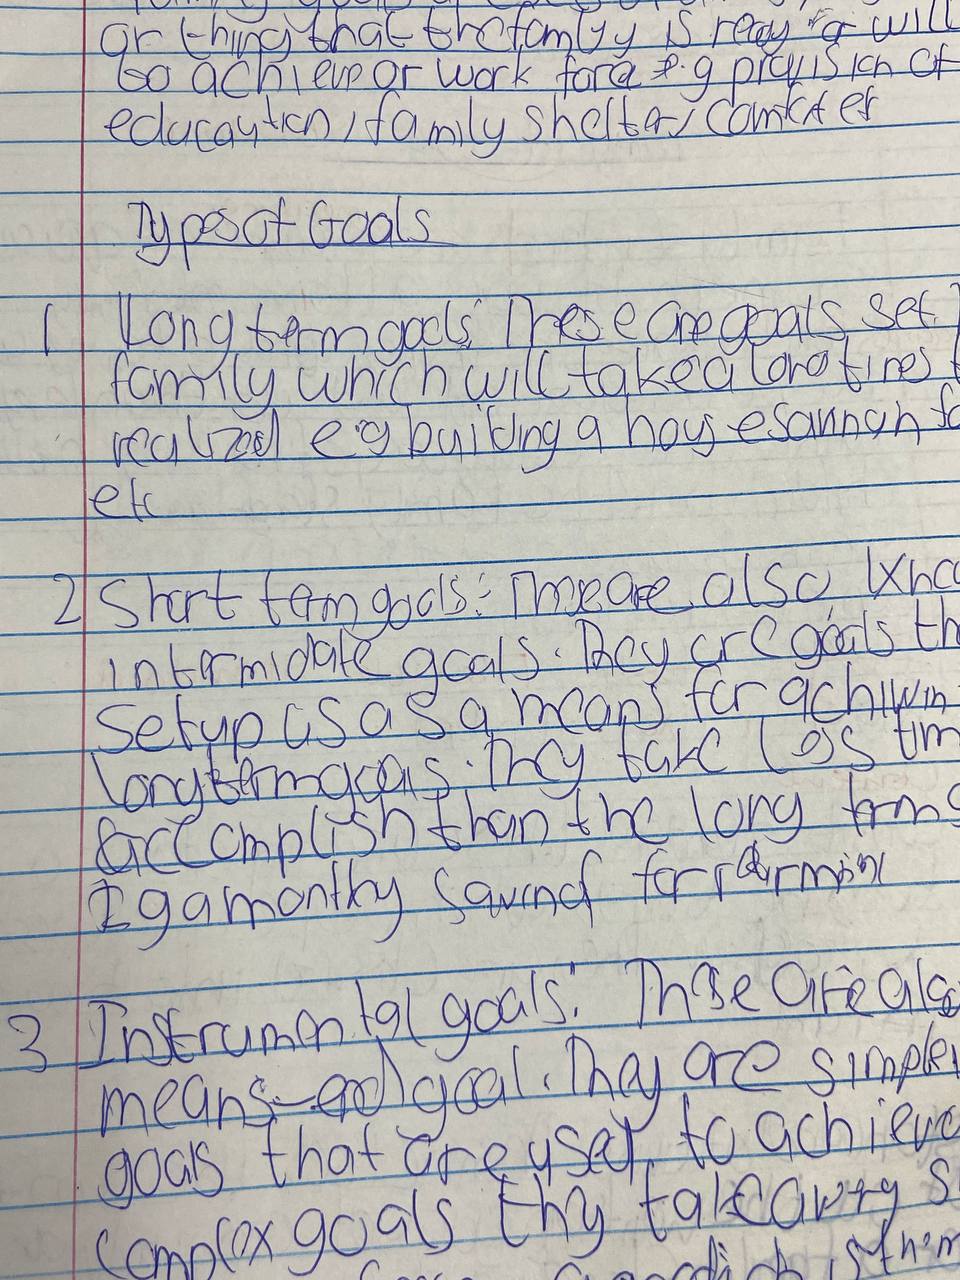 or thing that the family is ready or will
to achieve or work for e.g provision of
educaytion, family shelter, comfort et
Types of Goals
1 Long term goals: These are goals set
family which will take a long times
realized eg building a hoyse
etc
2 Short term goals: These are also kno
intermidate goals. They are goals th
setup as as a means for achivin
long term goals. They take less tim
accomplish than the long term
Eg a monthy saving for
3 Instrumental goals: These are also
means-end goal. They are simple
goals that are yser to achieve
complex goals thy take a very s